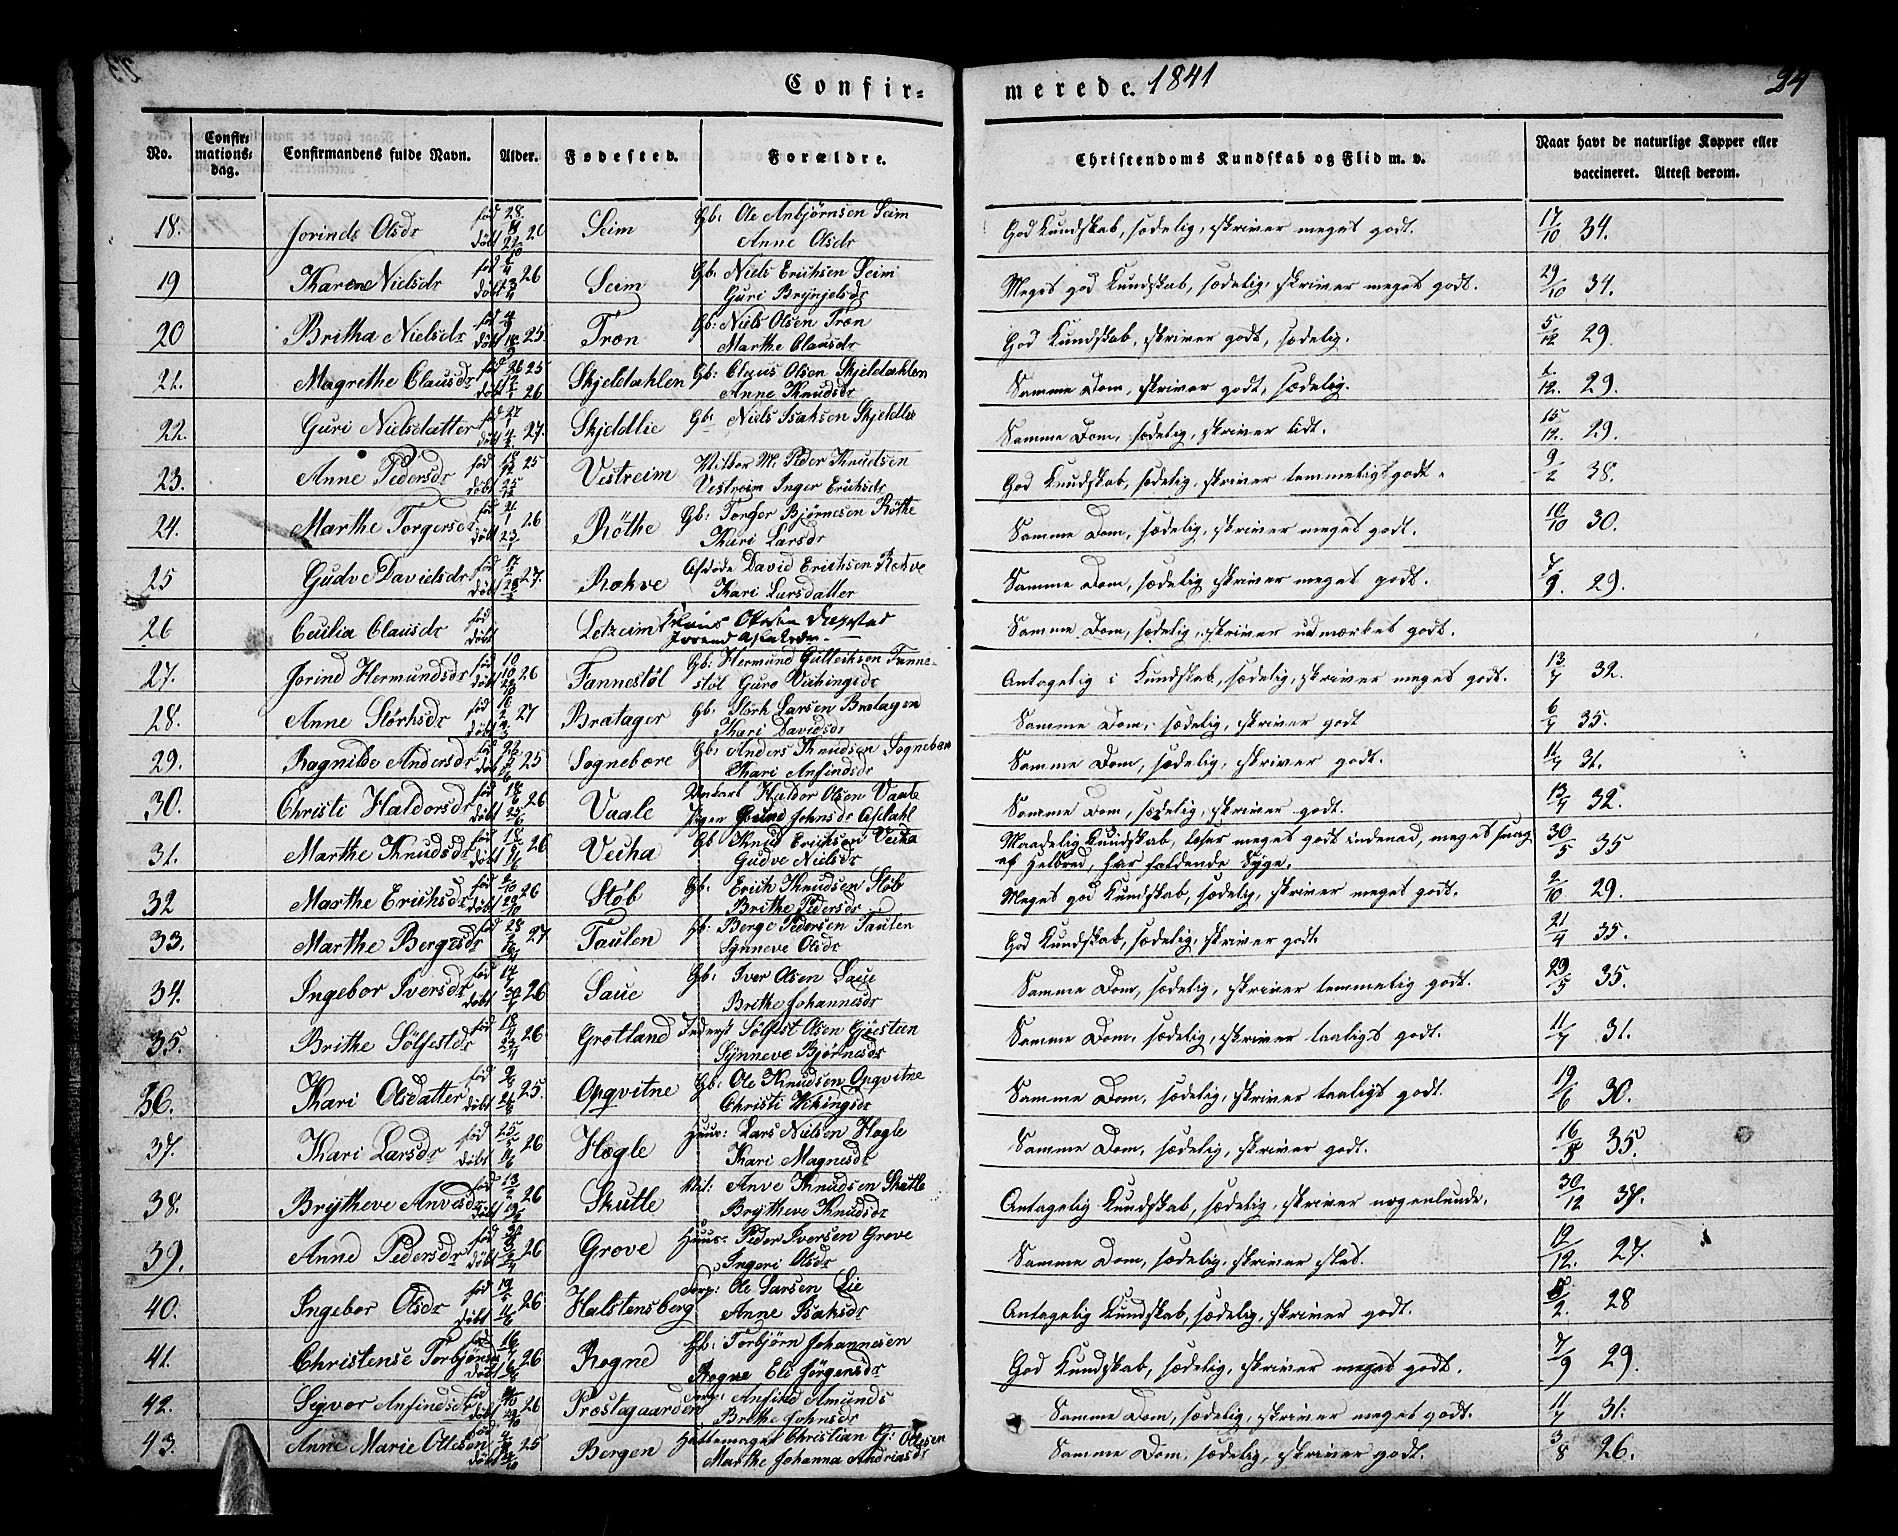 Confir-
merede. 1841
24
No.
Confir-
mations-
dag.
Confirmandens fulde Navn.
Alder.
Fødested.
Forældre.
Christendoms Kundskab og Flid m. v.
Naar havt de naturlige Kopper eller
vaccineret. Attest derom.
18. Jorinde Olsdr Seim Gb: Ole Anbjørnsen Seim
Anne Olsdr
God Kundskab, sædelig, skriver meget godt. 17/10 34.
19 Karen Nielsdr 26 Seim Gb: Niels Erichsen Seim
Guri Brynjelsdr
Meget god Kundskab, sædelig, skriver meget godt. 29/10 34.
20 Britha Nielsdr 25. Træn Gb: Niels Olsen Træn
Marthe Clausdr
God Kundskab, skriver godt, sædelig. 5/12 29.
21. Magrethe Clausdr 25 26 Skjeldahlen Gb: Claus Olsen Skjeldahlen
Anne Knudsdr
Samme Dom, skriver godt, sædelig. 29.
22. Guri Nielsdatter 27. Skjeldlie Gb: Niels Isaksen Skjeldlie
Samme Dom, sædelig, skriver lidt. 15/12. 29.
23. Anne Pedersdr 25 Vestreim Peder Knudsen
Vestreim Inger Erichsdr
God Kundskab, sædelig, skriver temmeligt godt. 9/2 38.
24. Marthe Torgersdr 26 Røthe Gb: Torger Bjørnesen Røthe
Kari Larsdr
Samme Dom, sædelig, skriver meget godt. 10/10 30.
25 Gudve Davidsdr 27. Rokve Afdøde David Erichsen Rokve
Kari Larsdatter
Samme Dom, sædelig, skriver meget godt. 7/9. 29.
26 Cecilia Clausdr Letreim
Samme Dom, sædelig, skriver udmærket godt.
27. Jorind Hermundsdr 26 Fannestøl Gb: Hermund Gutterhsen Fanne-
støl Guro Vichingsdr
Antagelig i Kundskab, sædelig, skriver meget godt. 13/7 32.
28. Anne Størksdr 27 Brætager Gb: Størk Larsen Bratagen
Kari Davidsdr
Samme Dom, sædelig, skriver godt 6/7 35.
29. Ragnilde Andersdr 25 Sognebøre Gb: Anders Knudsen Sognebøre
Kari Anfindsdr
Samme Dom, sædelig, skriver godt. 11/7 31.
30. Christi Haldorsdr 26 Vaale Haldor Olsen Vaale
Johnsdr Afdahl
Samme Dom, sædelig, skriver godt. 13/7 32.
31. Marthe Knudsdr 26 Vecha Gb Knud Erichsen Vecha
Gudve Nielsdr
Maadelig Kundskab, læser meget godt indenad, meget svag
af Helbred, har faldende Syge. 30/5 35
32 Marthe Erichsdr 26 Støb Gb: Erich Knudsen Støb
Brithe Pedersdr
Meget god Kundskab, sædelig, skriver meget godt. 2/10 29.
33. Marthe Bergesdr 27 Taulen Gb: Berge Pedersen Taulen
Synneve Olsdr
God Kundskab, sædelig, skriver godt. 21/4 35.
34. Ingebor Iversdr 26 Saue Gb: Iver Olsen Saue
Brithe Johannesdr
Samme Dom, sædelig, skriver temmelig godt. 29/5 35.
35. Brithe Sølfestdr 26. Grotland Inderst Sølfest Olsen Gjøestein
Synneve Bjørnesdr
Samme Dom, sædelig, skriver taaligt godt. 11/7 31.
36. Kari Olsdatter 25. Opqvitne Gb: Ole Knudsen Opqvitne
Christi Vikingsdr
Samme Dom, sædelig, skriver taaligt godt. 19/6 30.
37. Kari Larsdr 26 Hægle Huus: Lars Nielsen Hægle
Kari Magnesdr
Samme Dom, sædelig, skriver godt. 16/5 35.
38. Brytheve Anvesdr 26 Skutle Anve Knudsen Skutle
Brytheve Knudsdr
Antagelig Kundskab, sædelig, skriver nogenlunde. 30/12 37.
39. Anne Pedersdr 26 Grove Huus: Peder Iversen Grove
Ingeri Olsdr
Samme Dom, sædelig, skriver slet. 12/12. 27.
40. Ingebor Olsdr 26 Halstensberg Ole Larsen Lie
Anne Isaksdr
Antagelig Kundskab, sædelig, skriver godt. 28
41. Christense Torbjørnsdr 26 Rogne Gb: Torbjørn Johannesen
Rogne Eli Jørgensdr
God Kundskab, sædelig, skriver meget godt. 7/9 29.
42. Sigvor Anfindsdr 26 Præstegaarden Anfind Amunds
Brithe Johnsdr
Samme Dom, sædelig, skriver meget godt. 11/7 31.
43. Anne Marie Ottesen 25 Bergen Hattemager Christian G: Ottesen
Marthe Johanna Andriasdr
Samme Dom, sædelig, skriver godt. 3/8 26.